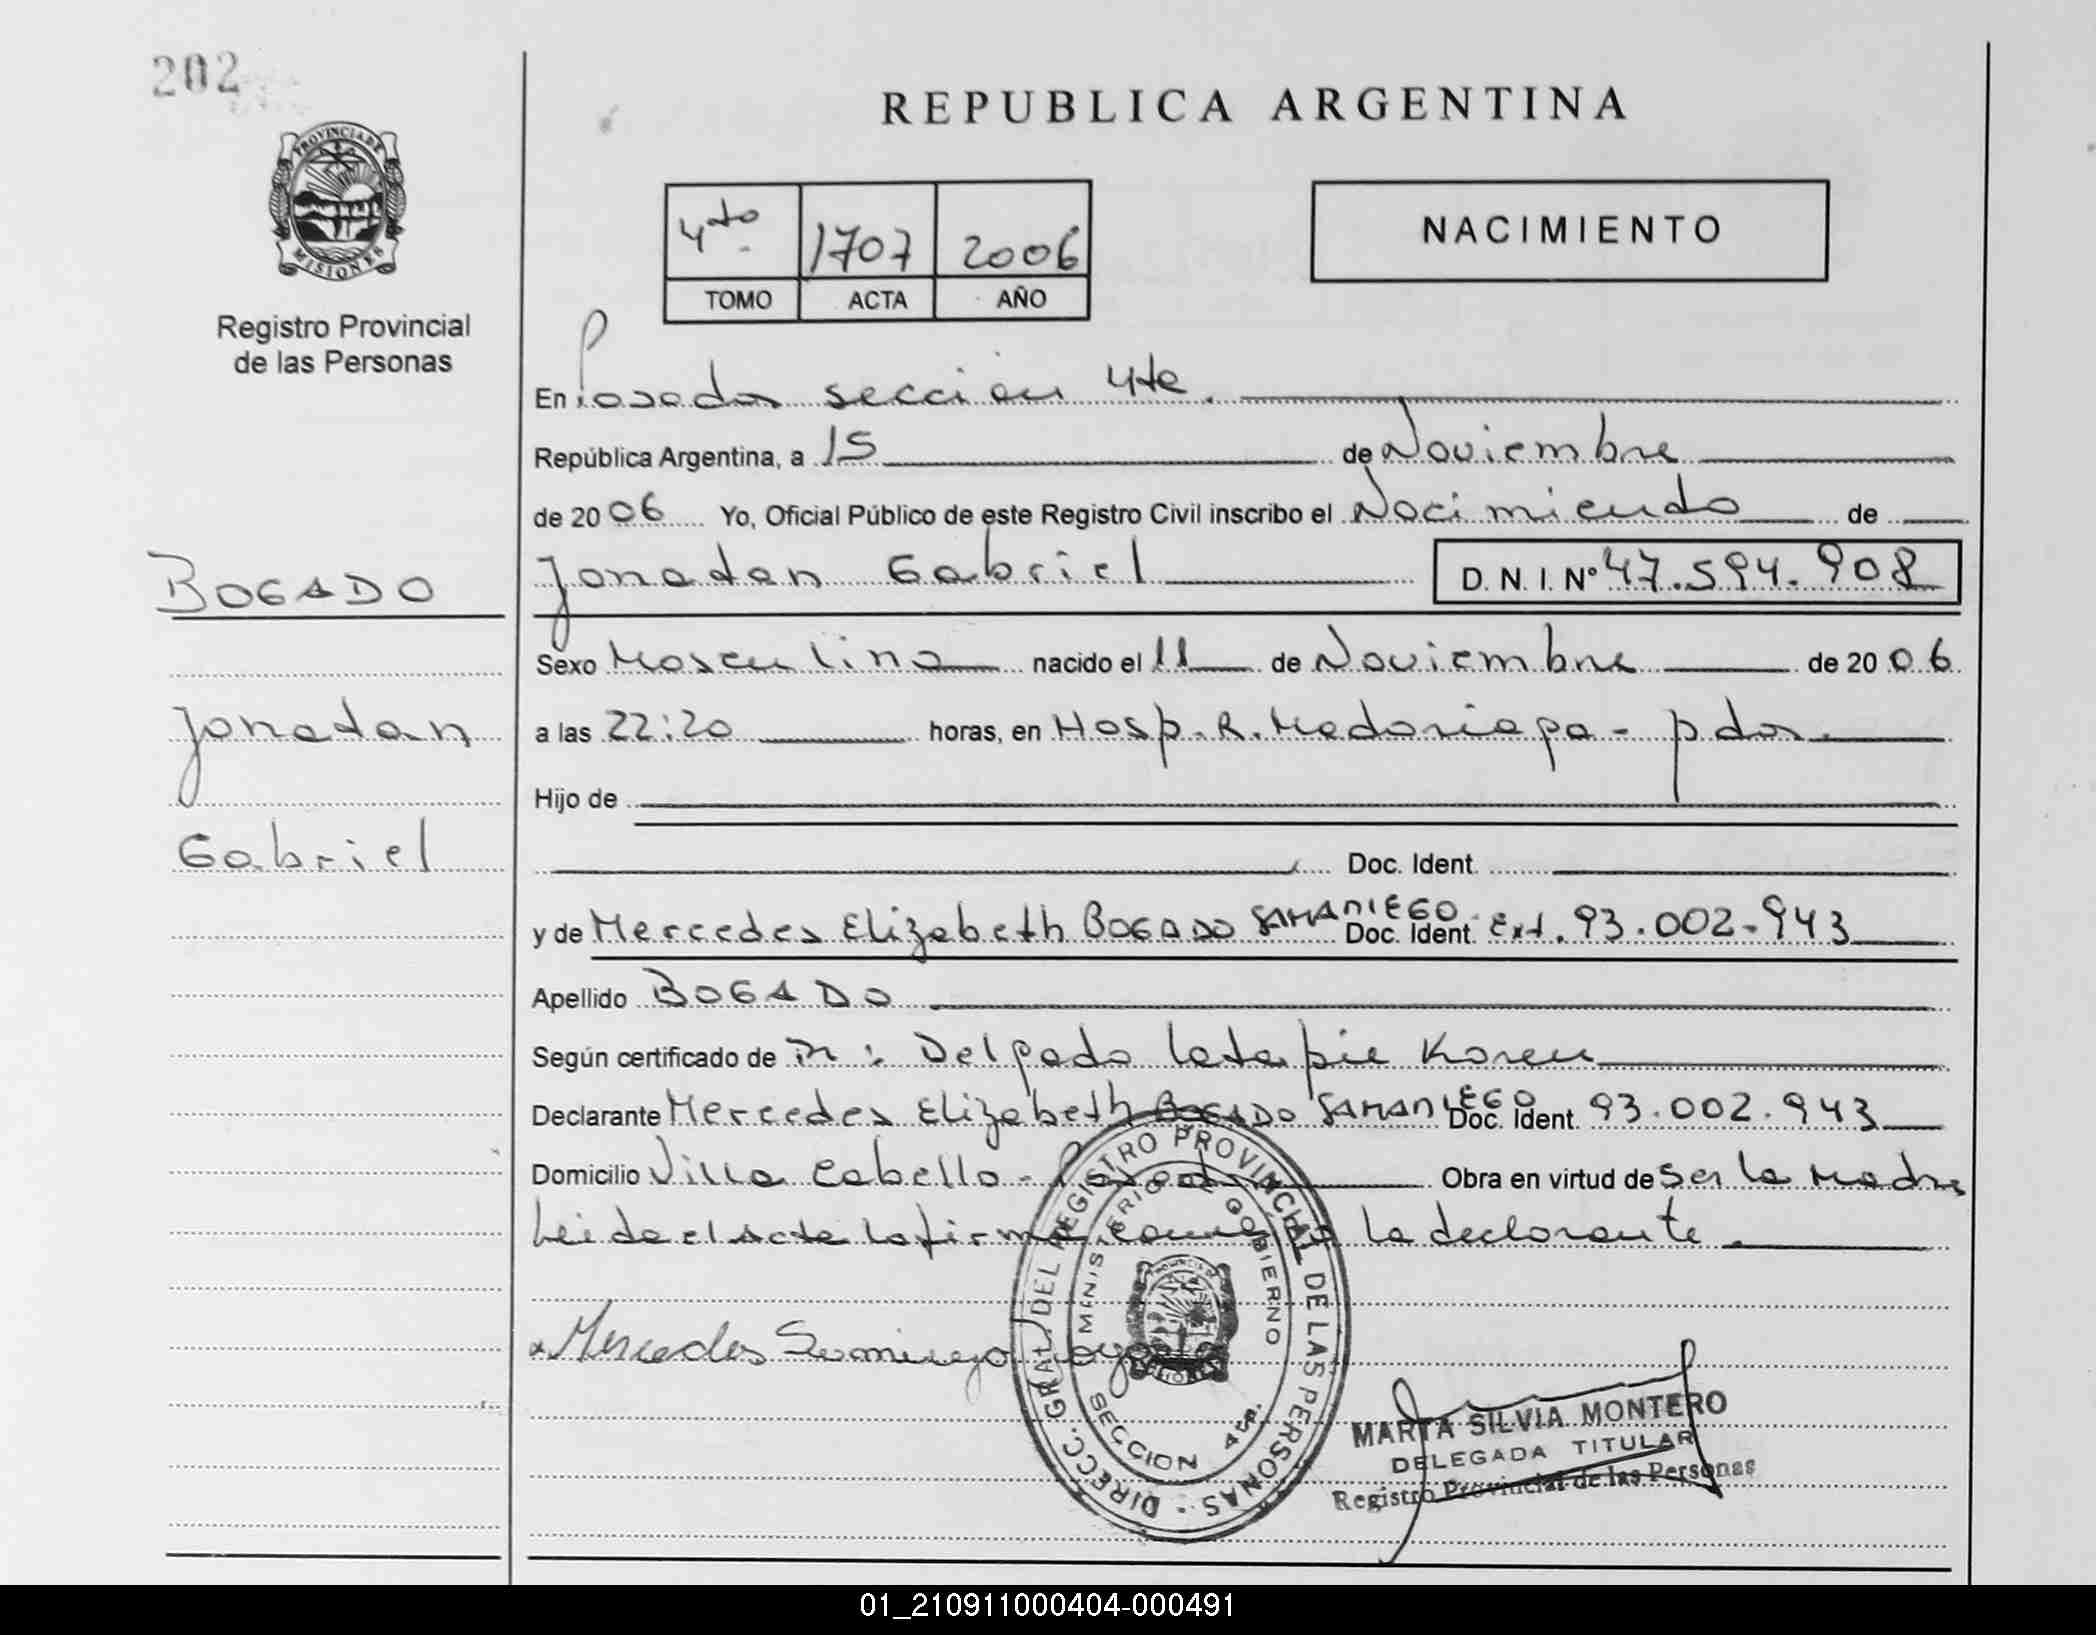 202
REPUBLICA ARGENTINA
PROVINCIA DE MISIONES
Registro Provincial
de las Personas
4to 1707 2006
TOMO ACTA AÑO
NACIMIENTO
En Posadas seccion 4ta.
República Argentina, a 15 de Noviembre
de 2006 Yo, Oficial Público de este Registro Civil inscribo el Nacimiento de
BOGADO
Jonatan Gabriel D. N. I. Nº 47.594.908
Sexo Masculino nacido el 11 de Noviembre de 2006
Jonatan
a las 22:20 horas, en Hosp. R. Madariaga - pdas.
Hijo de
Gabriel
Doc. Ident.
y de Mercedes Elizabeth BOGADO SAMANIEGO Doc. Ident. Ext. 93.002.943
Apellido BOGADO
Según certificado de Dr: Delgado Latapie Karen
Declarante Mercedes Elizabeth BOGADO SAMANIEGO Doc. Ident. 93.002.943
Domicilio Villa Cabello - Posadas Obra en virtud de ser la Madre
Leida el Acta la firma conmigo la declarante.
Mercedes
DIRECC. GRAL. DEL REGISTRO PROVINCIAL DE LAS PERSONAS
MINISTERIO DE GOBIERNO
SECCION 4ta.
MARTA SILVIA MONTERO
DELEGADA TITULAR
Registro Provincial de las Personas
01_210911000404-000491